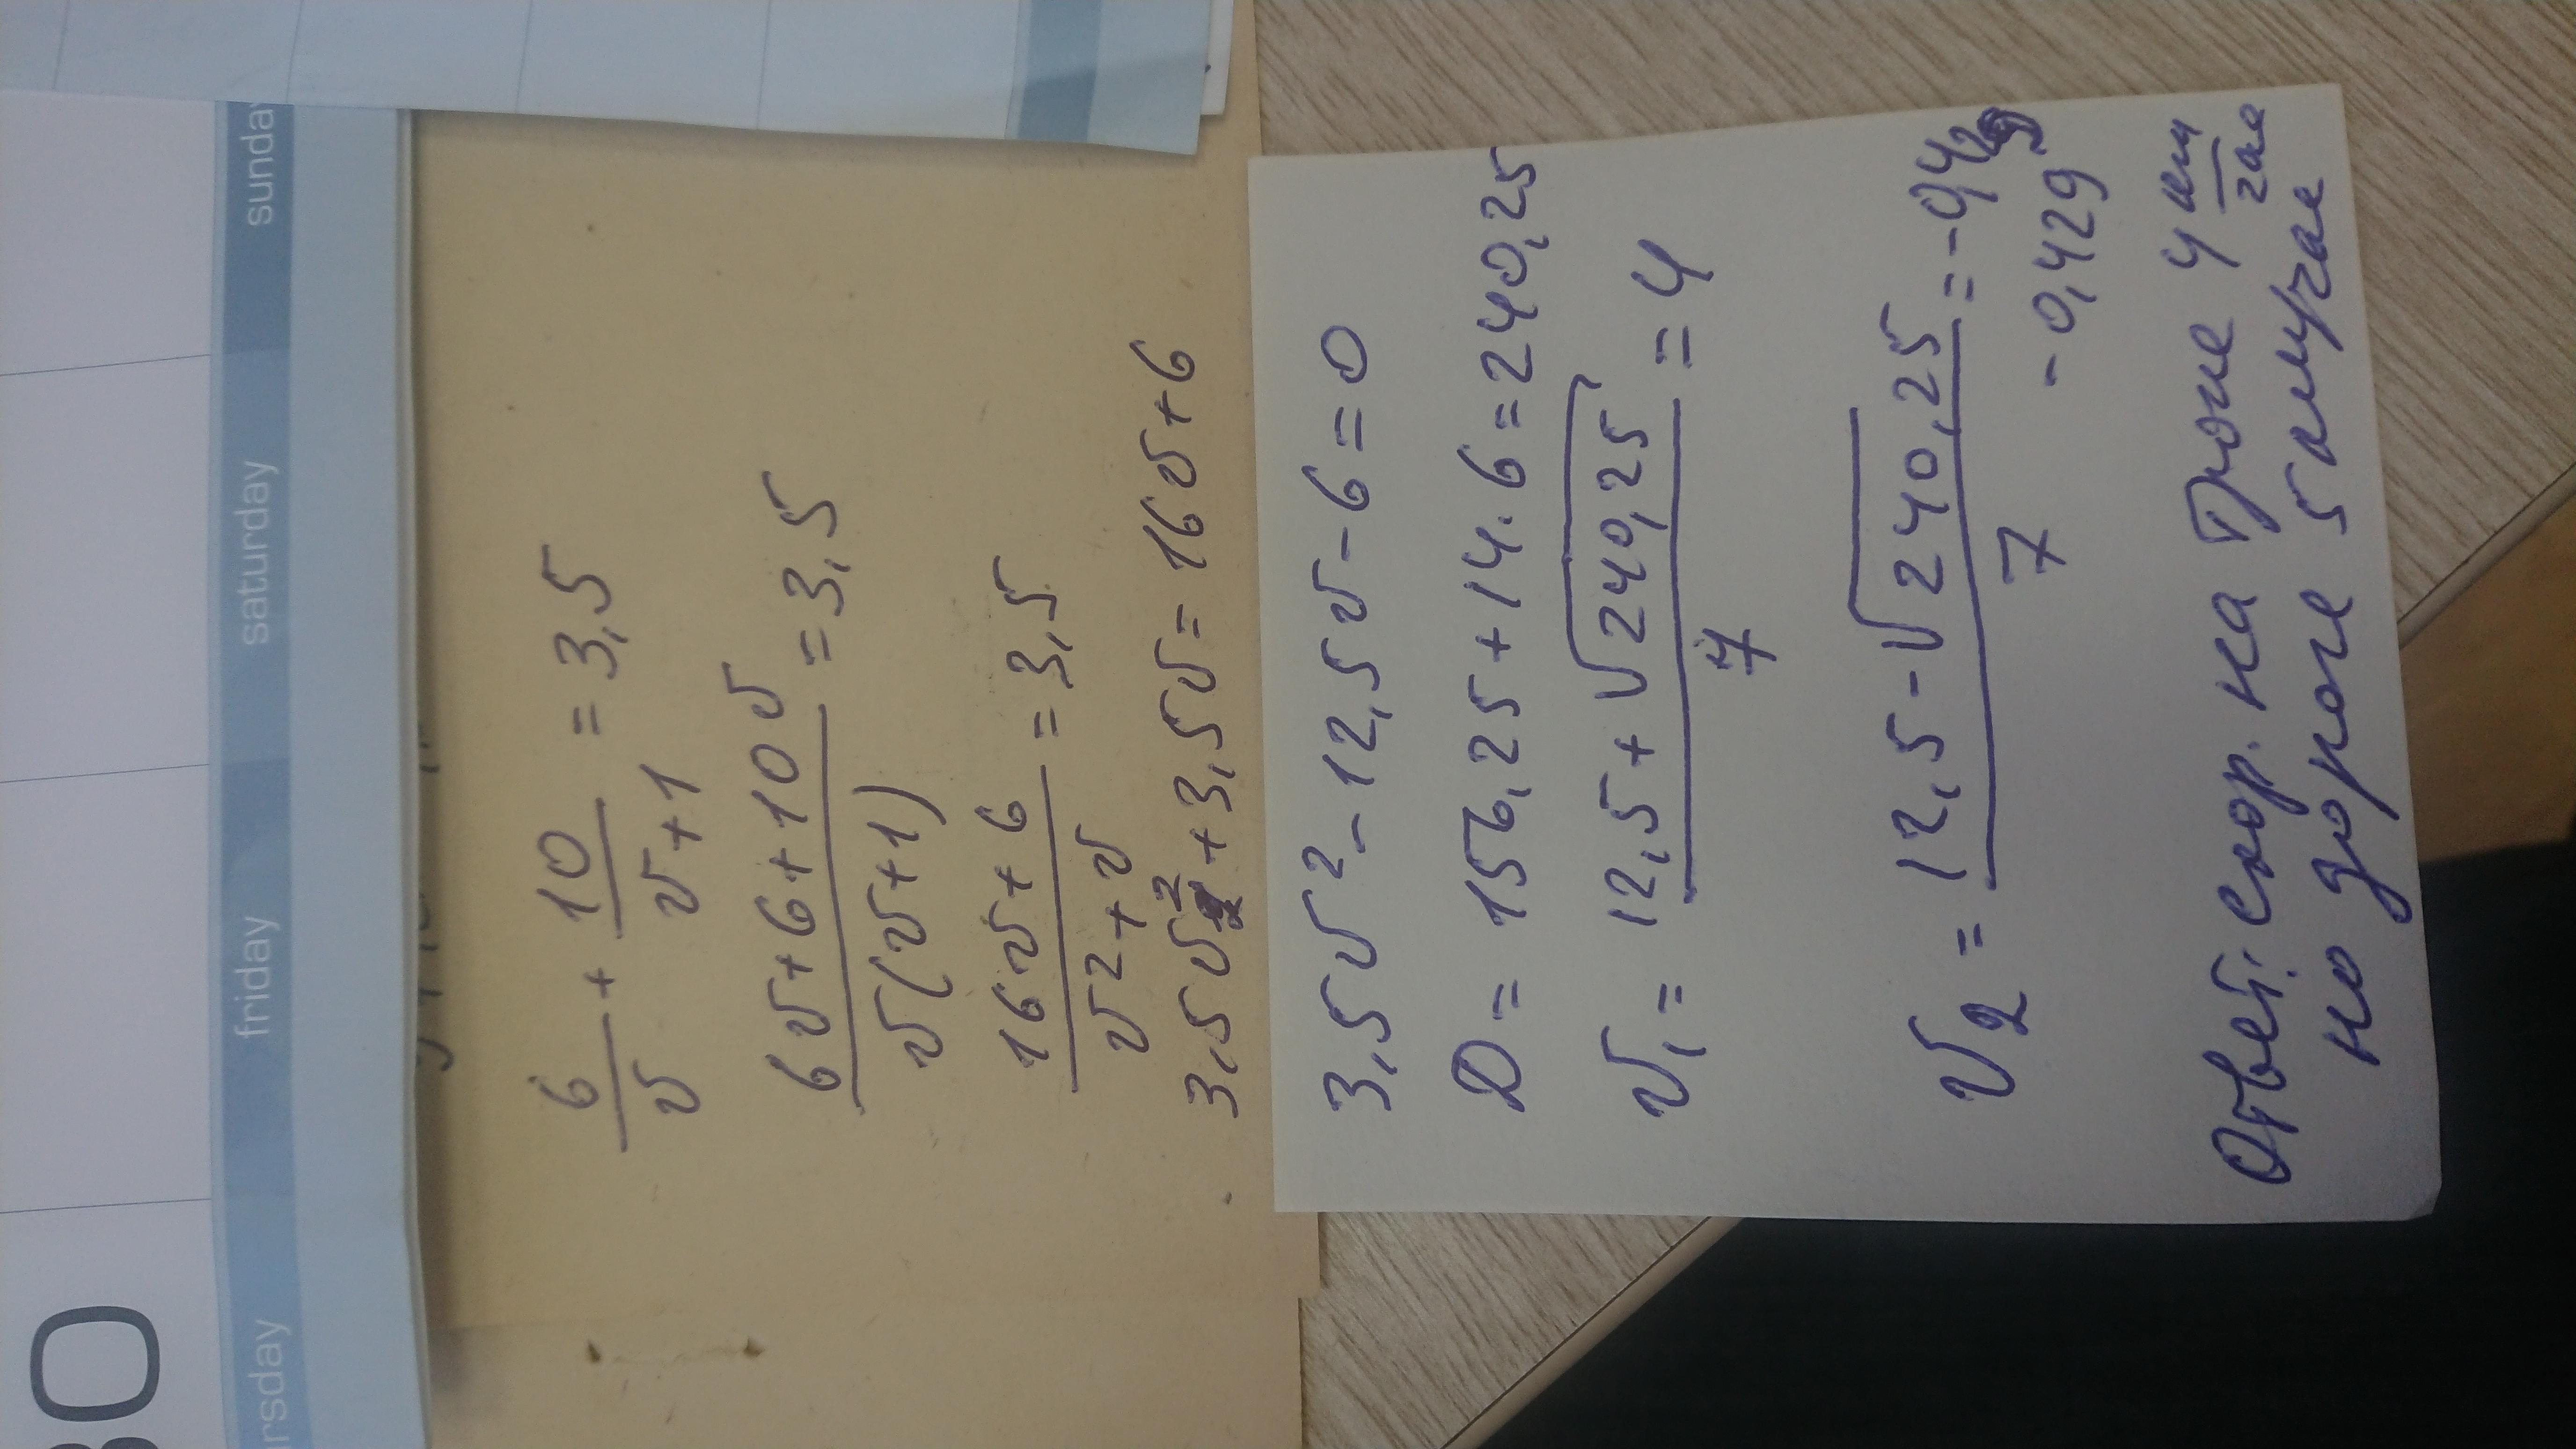 30
rsday friday saturday sunday
6/v + 10/(v+1) = 3,5
(6v+6+10v)/(v(v+1)) = 3,5
(16v+6)/(v²+v) = 3,5
3,5v²+3,5v=16v+6
3,5v²-12,5v-6=0
D = 156,25+14·6=240,25
v₁ = (12,5+√240,25)/7 = 4
v₂ = (12,5-√240,25)/7 = -0,42
-0,429
Ответ: скор. на тропе 4 км/час
по дороге 5 км/час